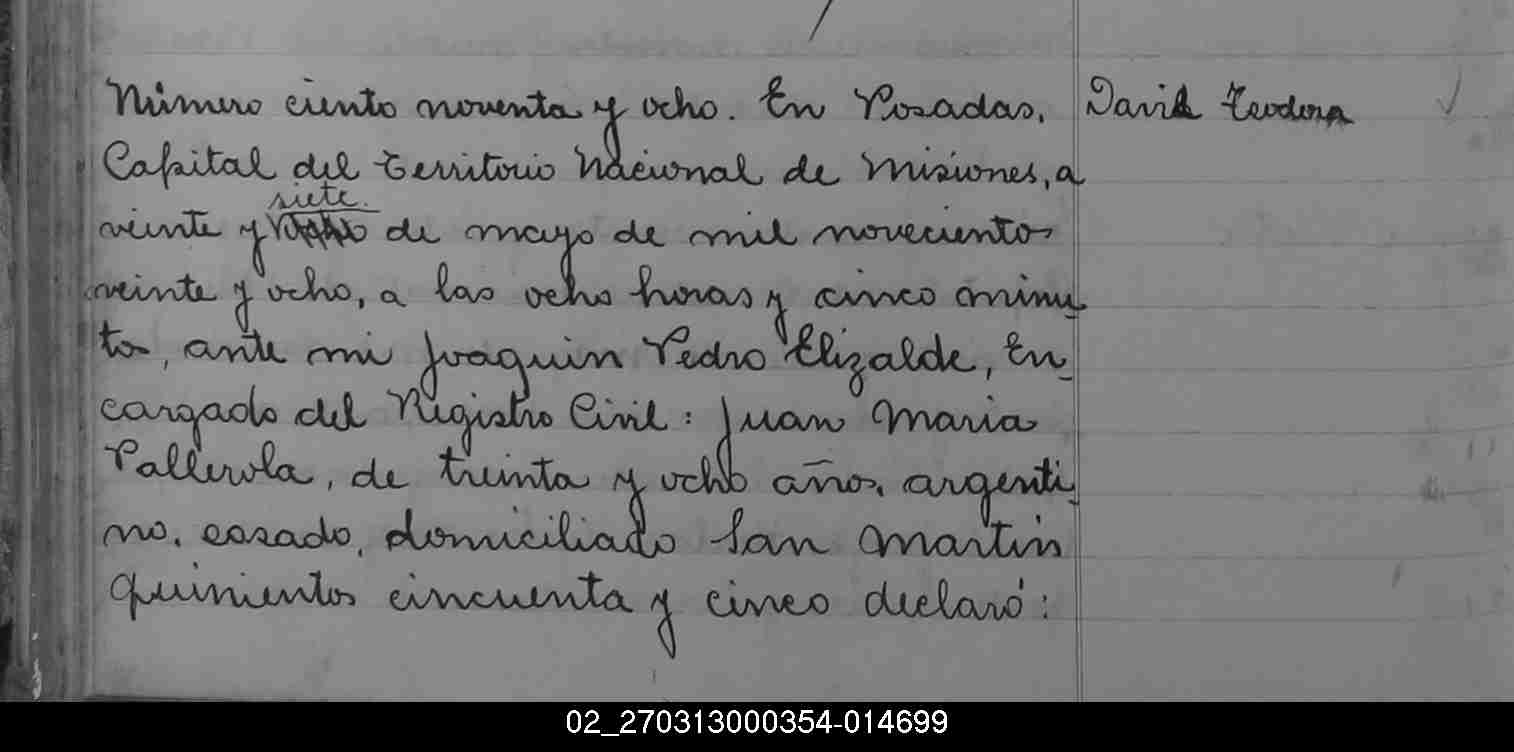 Número ciento noventa y ocho. En Posadas,
Capital del Territorio Nacional de Misiones, a
siete.
veinte y de mayo de mil novecientos
veinte y ocho, a las ocho horas y cinco minu-
tos, ante mi Joaquin Pedro Elizalde, En-
cargado del Registro Civil: Juan Maria
Pallerola, de treinta y ocho años, argenti-
no, casado, domiciliado San Martin
quinientos cincuenta y cinco declaró:
David Teodora
02_270313000354-014699